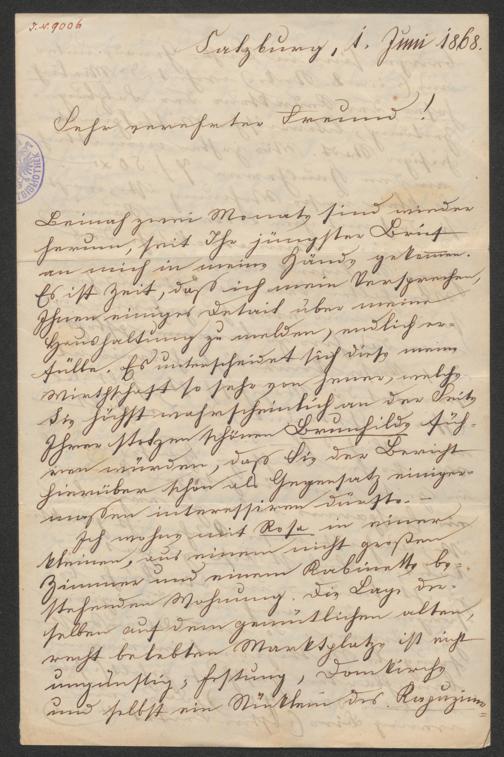 J.N. 9006
Salzburg, 1. Juni 1868.
Sehr verehrter Freund!
BIBLIOTHEK
Beinah zwei Monate sind wieder
herum, seit Ihr jüngster Brief
an mich in meine Hände gekommen.
Es ist Zeit, daß ich mein Versprechen,
Ihnen einiges Detail über meine
Haushaltung zu melden, endlich er-
fülle. Es unterscheidet sich diese meine
Wirthschaft so sehr von jener, welche
Sie höchst wahrscheinlich an der Seite
Ihrer stolzen schönen Brunhilde füh-
ren würden, daß Sie der Bericht
hierüber schon als Gegensatz einiger-
massen interessiren dürfte. –
Ich wohne mit Rosa in einer
kleinen, aus einem nicht großen
Zimmer und einem Kabinette be-
stehenden Wohnung. Die Lage der-
selben auf dem gemütlichen alten,
recht belebten Marktplatze ist nicht
ungünstig; Festung, Domkirche
und selbst ein Stücklein des Kapuziner-